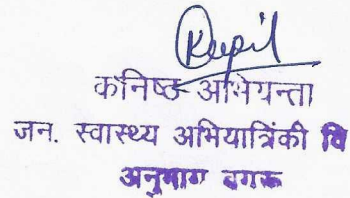 Kapil
कनिष्ठ अभियन्ता
जन. स्वास्थ्य अभियांत्रिकी वि
अनुभाग बगरू